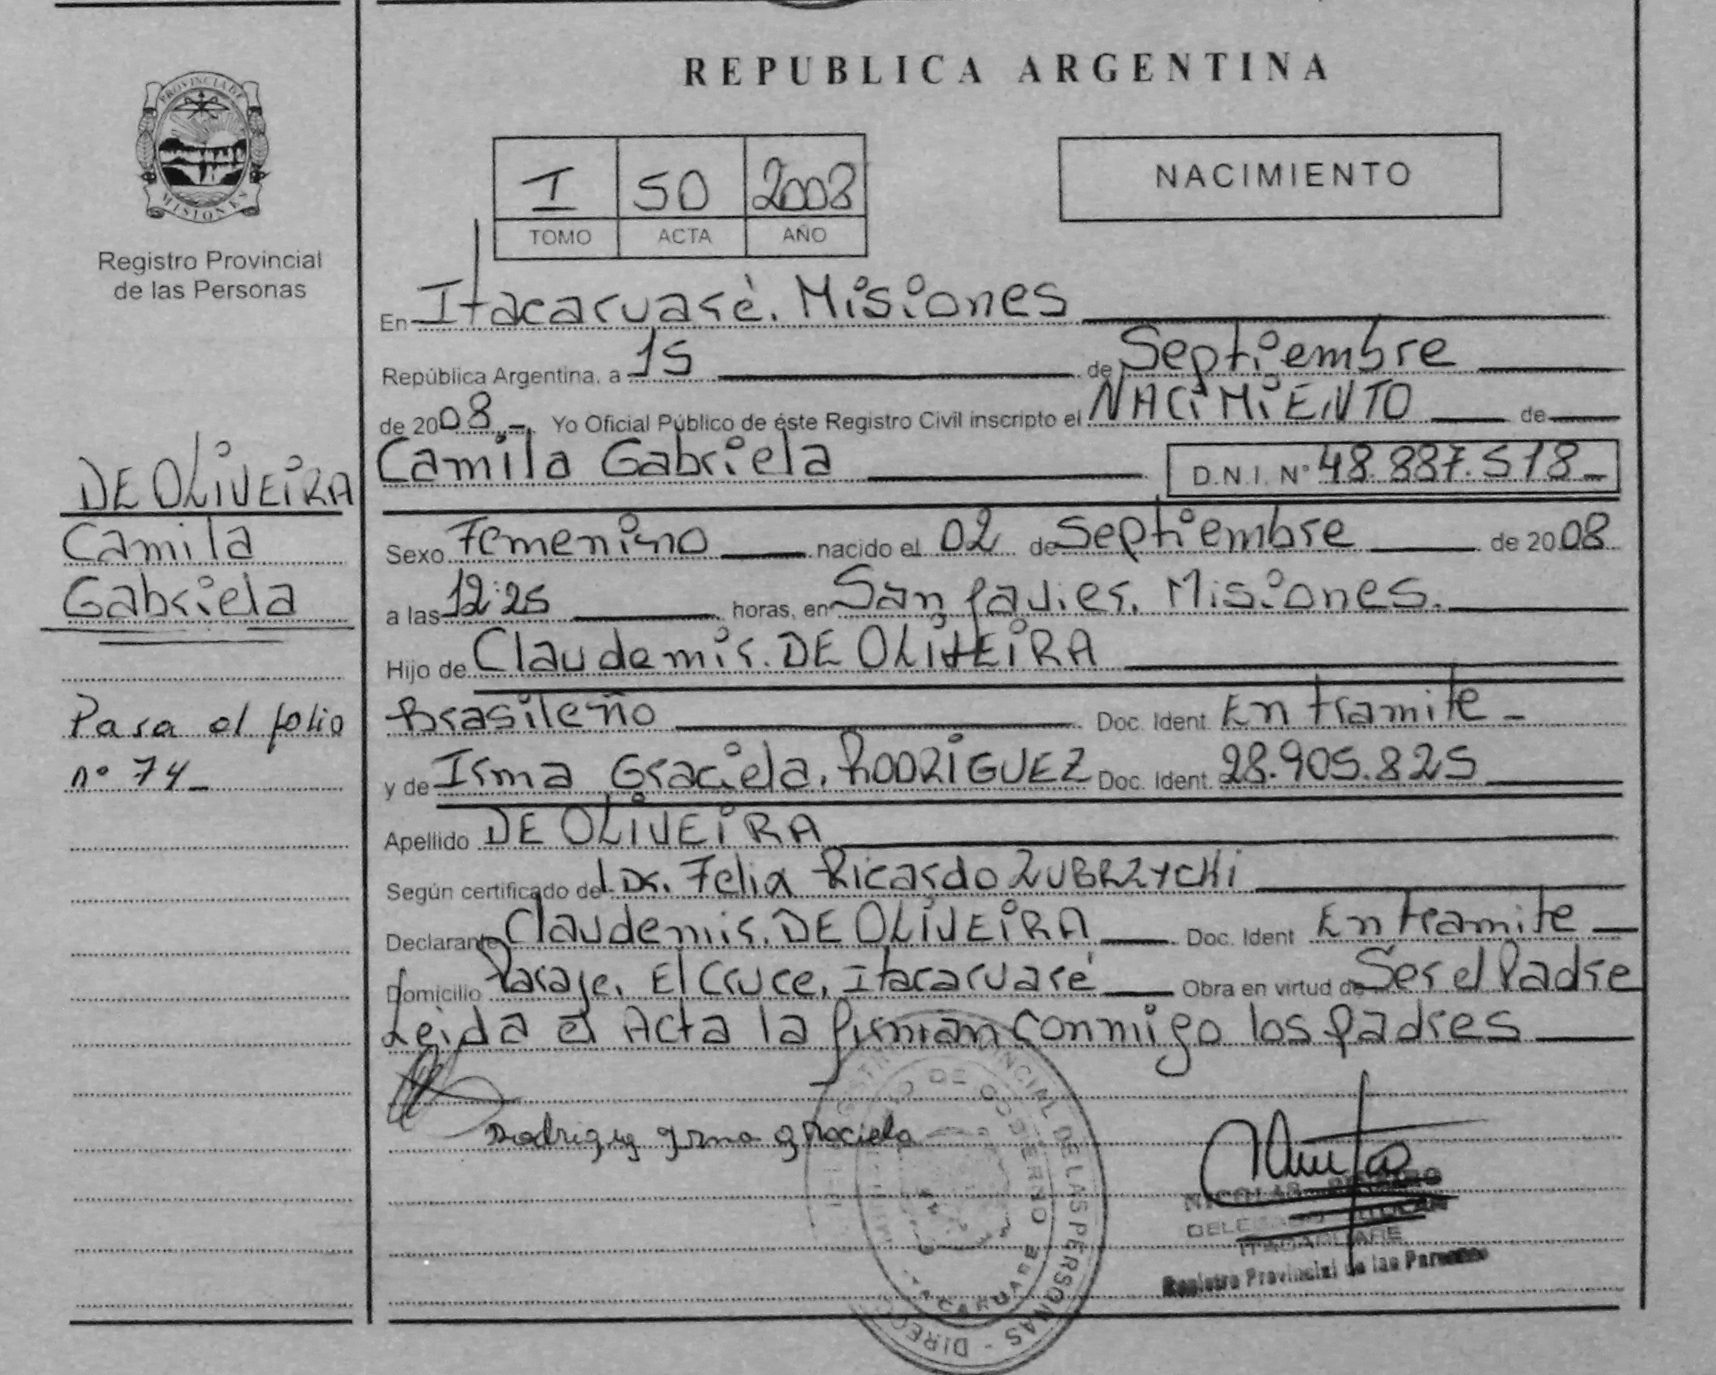 PROVINCIA DE
MISIONES
Registro Provincial
de las Personas
DE OLIVEIRA
Camila
Gabriela
Pasa al folio
nº 74_
REPUBLICA ARGENTINA
I 50 2008
TOMO ACTA AÑO
NACIMIENTO
En Itacaruaré. Misiones
República Argentina, a 15 de Septiembre
de 2008.- Yo Oficial Público de éste Registro Civil inscripto el NACIMIENTO de
Camila Gabriela D.N.I. Nº 48.887.578_
Sexo Femenino nacido el 02 de Septiembre de 2008
a las 12:25 horas, en San Javier. Misiones.
Hijo de Claudemir. DE OLIVEIRA
Brasileño Doc. Ident. En tramite_
y de Irma Graciela. RODRIGUEZ Doc. Ident. 28.905.825
Apellido DE OLIVEIRA
Según certificado del Dr. Felix Ricardo ZUBRZYCHi
Declarante Claudemir. DE OLIVEIRA Doc. Ident En tramite
Domicilio Paraje. El Cruce, Itacaruaré Obra en virtud de Ser el Padre
Leida el Acta la firman conmigo los padres
Rodriguez Irma Graciela
DELEGADO TITULAR
ITACARUARE
Registro Provincial de las Personas